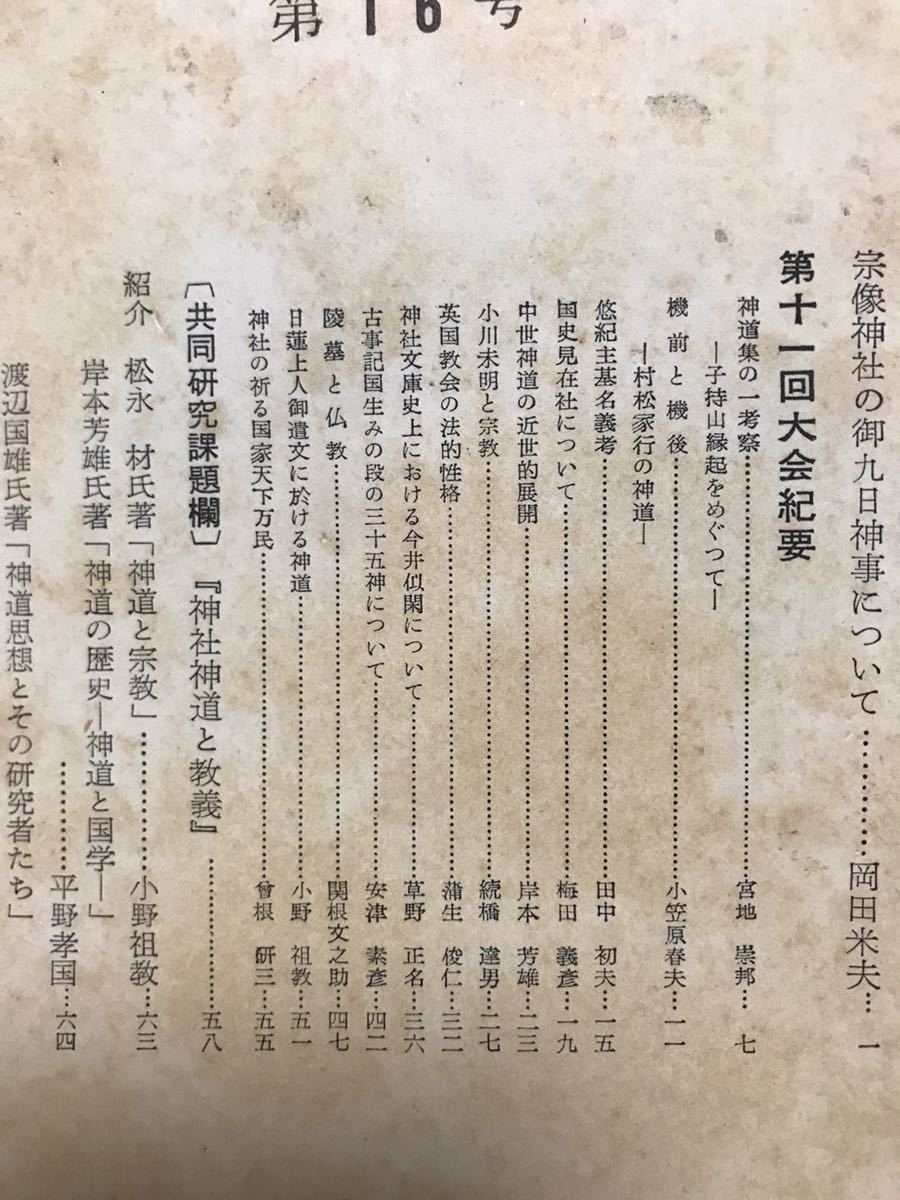 第16号
宗像神社の御九日神事について…………岡田米夫…一
第十一回大会紀要
神道集の一考察…………宮地 崇邦…七
―子持山縁起をめぐつて―
機前と機後…………小笠原春夫…一一
―村松家行の神道―
悠紀主基名義考…………田中 初夫…一五
国史見在社について…………梅田 義彦…一九
中世神道の近世的展開…………岸本 芳雄…二三
小川未明と宗教…………続橋 達男…二七
英国教会の法的性格…………蒲生 俊仁…三二
神社文庫史上における今井似閑について…………草野 正名…三六
古事記国生みの段の三十五神について…………安津 素彦…四二
陵墓と仏教…………関根文之助…四七
日蓮上人御遺文に於ける神道…………小野 祖教…五一
神社の祈る国家天下万民…………曾根 研三…五五
〔共同研究課題欄〕『神社神道と教義』…………五八
紹介 松永 材氏著「神道と宗教」…………小野祖教…六三
岸本芳雄氏著「神道の歴史―神道と国学―」
…………平野孝国…六四
渡辺国雄氏著「神道思想とその研究者たち」